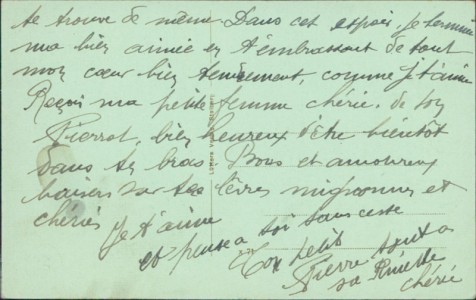 te trouve de même. Dans cet espoir, je termine
ma bien aimée en t'embrassant de tout
mon cœur bien tendrement, comme je t'aime
Reçois ma petite femme chérie, de ton
Pierrot, bien heureux d'être bientôt
dans tes bras Bons et amoureux
baisers sur tes lèvres mignonnes et
chéries Je t'aime
et pense à toi sans cesse
Ton petit
Pierre tout à
sa Ninette
chérie